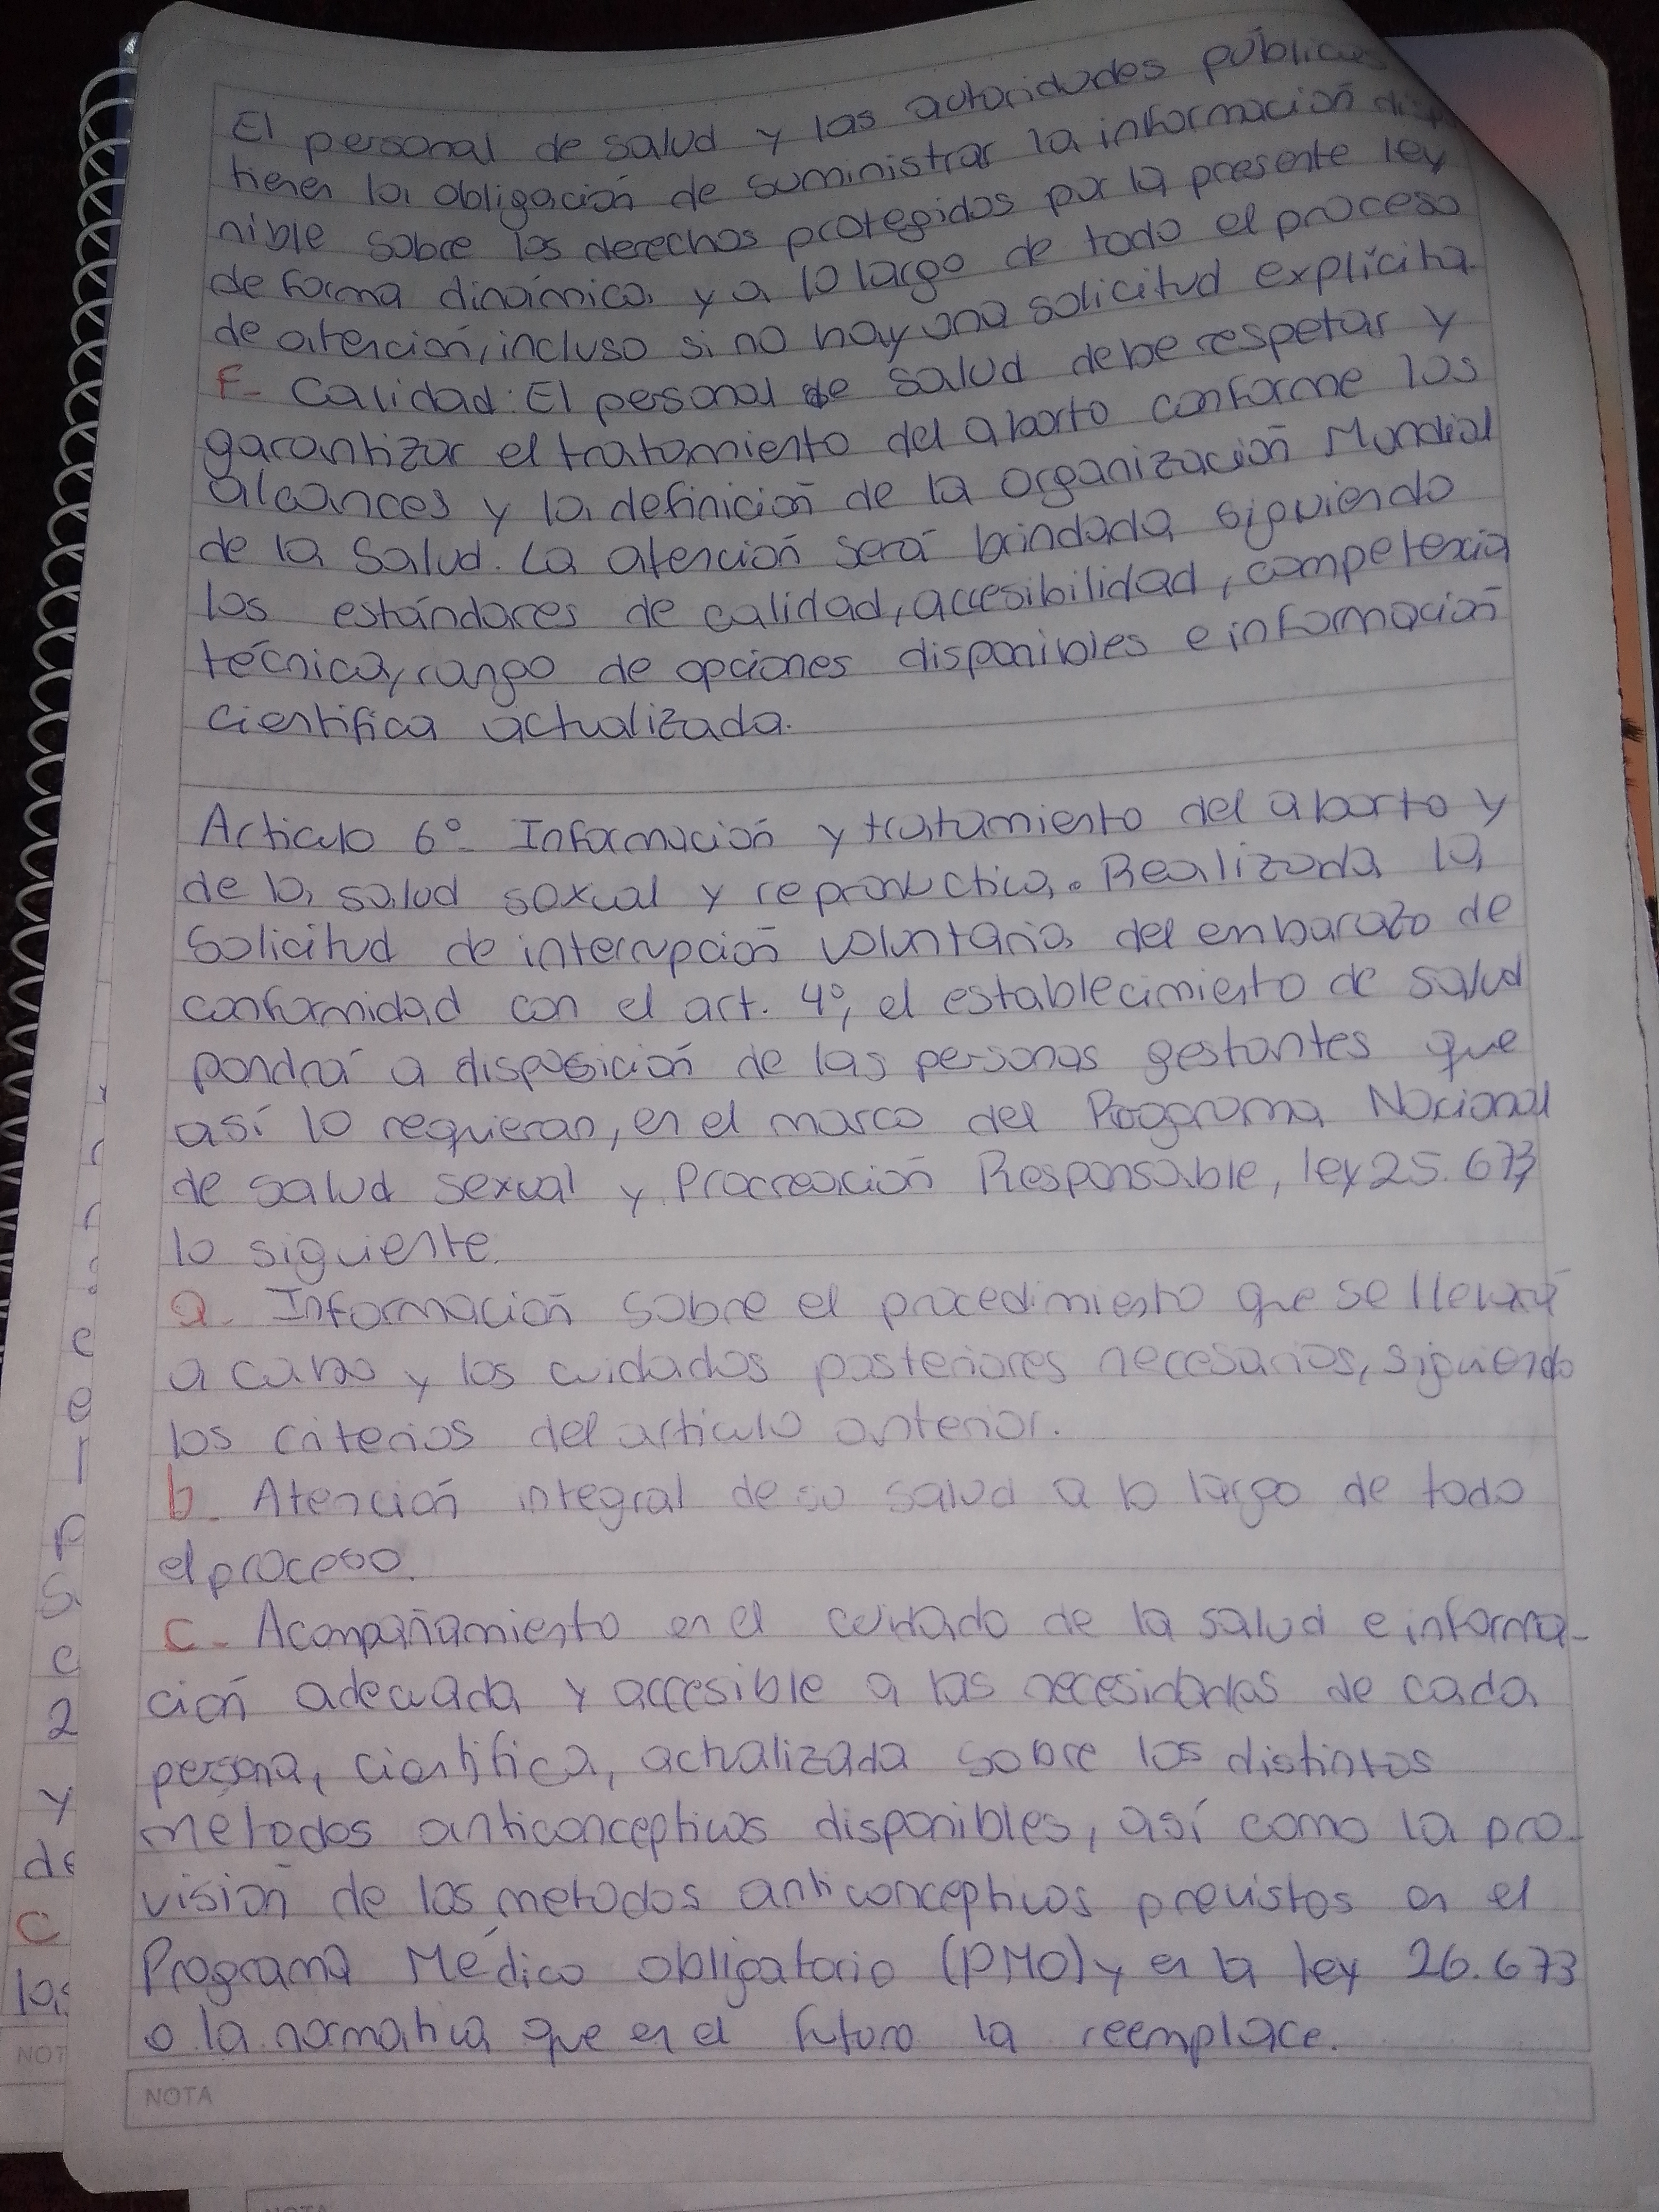 El personal de salud y las autoridades públicas
tienen la obligación de suministrar la información disp
nible sobre los derechos protegidos por la presente ley
de forma dinámica y a lo largo de todo el proceso
de atención, incluso si no hay una solicitud explícita.
F- Calidad: El personal de salud debe respetar y
garantizar el tratamiento del aborto conforme los
alcances y la definición de la Organización Mundial
de la Salud. La atención será brindada siguiendo
los estándares de calidad, accesibilidad, competencia
técnica, rango de opciones disponibles e información
científica actualizada.
Articulo 6º- Información y tratamiento del aborto y
de la salud sexual y reproductiva. Realizada la
Solicitud de interrupción voluntaria del embarazo de
conformidad con el art. 4º, el establecimiento de salud
pondrá a disposición de las personas gestantes que
así lo requieran, en el marco del Programa Nacional
de salud sexual y Procreación Responsable, ley 25.673,
lo siguiente.
a- Información sobre el procedimiento que se llevará
a cabo y los cuidados posteriores necesarios, siguiendo
los criterios del artículo anterior.
b- Atención integral de su salud a lo largo de todo
el proceso.
c- Acompañamiento en el cuidado de la salud e informa-
ción adecuada y accesible a las necesidades de cada
persona, científica, actualizada sobre los distintos
métodos anticonceptivos disponibles, así como la pro-
visión de los métodos anticonceptivos previstos en el
Programa Médico obligatorio (PMO) y en la ley 26.673
o la normativa que en el futuro la reemplace.
NOTA
y
de
C
las
NOT